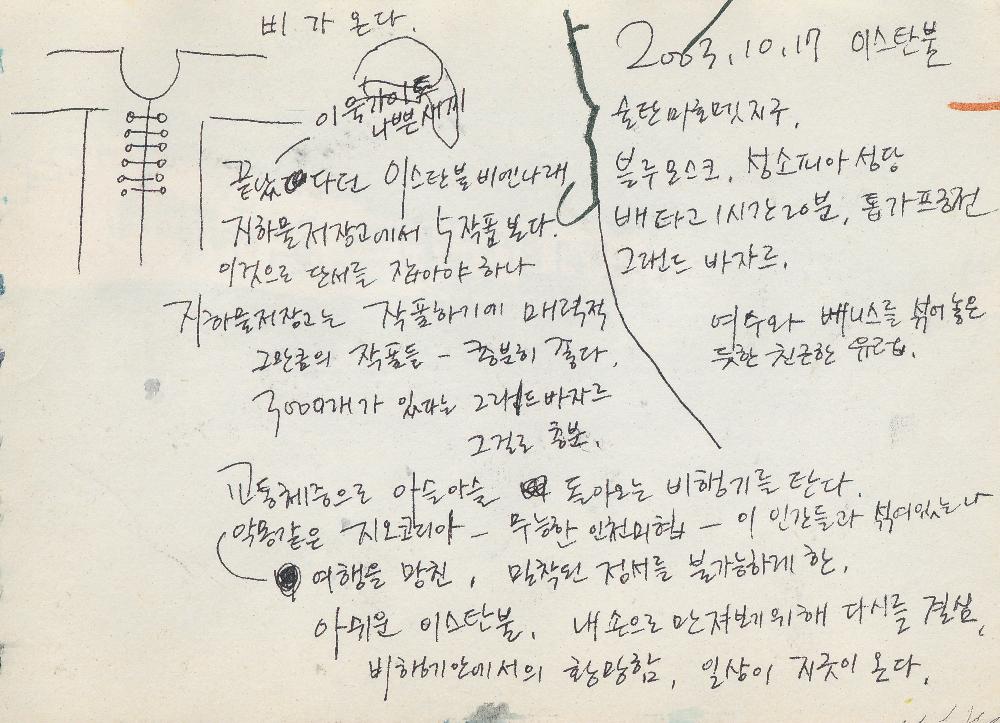 비가 온다.
나쁜새끼
끝났다던 이스탄불비엔나래
지하물저장고에서 5작품 본다.
이것으로 단서를 잡아야 하나
지하물저장고는 작품하기에 매력적
그만큼의 작품들 - 충분히 좋다.
3000개가 있다는 그랜드바자르
그걸로 충분.
2003.10.17 이스탄불
술탄마호멧지구.
블루모스크, 성소피아성당
배타고 1시간20분, 톱가프궁전
그랜드 바자르.
여수와 베니스를 섞어놓은
듯한 친근한 유럽.
교통체증으로 아슬아슬 돌아오는 비행기를 탄다.
악몽같은 지오코리아 - 무능한 인천미협 - 이 인간들과 섞여있는 나
여행을 망친, 밀착된 정서를 불가능하게 한,
아쉬운 이스탄불. 내 손으로 만져보기위해 다시를 결심,
비행기안에서의 황망함, 일상이 지긋이 온다.